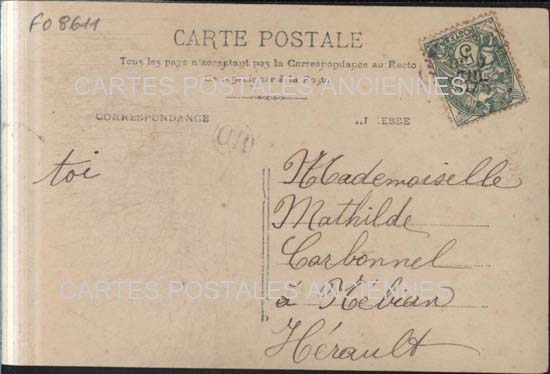 FO 8611
CARTE POSTALE
Tous les pays n'acceptant pas la Correspondance au Recto
à la Poste
CARTES POSTALES ANCIENNES
CORRESPONDANCE
toi
Mademoiselle
Mathilde
Carbonnel
à Nébian
Hérault
CARTES POSTALES ANCIENNES